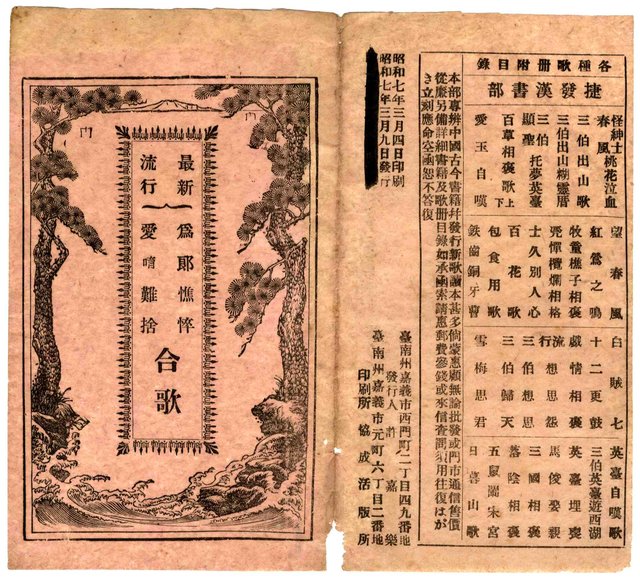 各種歌册附目錄
捷發漢書部
怪紳士 桃花泣血
春風
三伯出山歌
三伯出山糊靈厝
三伯顯聖 托夢英臺
百草相褒歌 上下
愛玉自嘆
望春風
紅鶯之鳴
牧童樵子相褒
士久別人心
百花歌
包食用歌
鉄齒銅牙曹
白賊七
十二更鼓
戲情相褒
流行 想思怨
三伯想思
三伯歸天
雪梅思君
英臺自嘆歌
三伯英臺遊西湖
英臺埋喪
馬俊娶親
三國相褒
善陰相褒
五鼠鬧宋宮
日暮山歌
本部專辨中國古今書籍幷發行新歌讀本甚多倘蒙惠顧無論批發或門市通信售價
從廉另備詳細書籍及歌册目錄如承函索請惠郵費參錢或來信查問須用往復はが
き立刻應命空函恕不答復
昭和七年三月四日印刷
昭和七年三月九日發行
臺南州嘉義市西門町二丁目四九番地
發行人 許嘉樂
臺南州嘉義市元町六丁目二番地
印刷所 協成活版所
最新 流行
爲郎憔悴
愛唷難捨
合歌